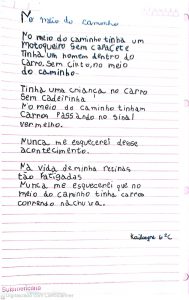 No meio do caminho
No meio do caminho tinha um
Motoqueiro sem capacete
Tinha um homem dentro do
Carro sem cinto, no meio
do caminho
Tinha uma criança no carro
Sem cadeirinha
No meio do caminho tinham
Carros passando no sinal
vermelho.
Nunca me esquecerei desse
acontecimento.
Na vida de minha retinas
tão fatigadas
Nunca me esquecerei que no
meio do caminho tinha carro
correndo na chuva.
6º C
Sulamericana
Digitalizado com CamScanner